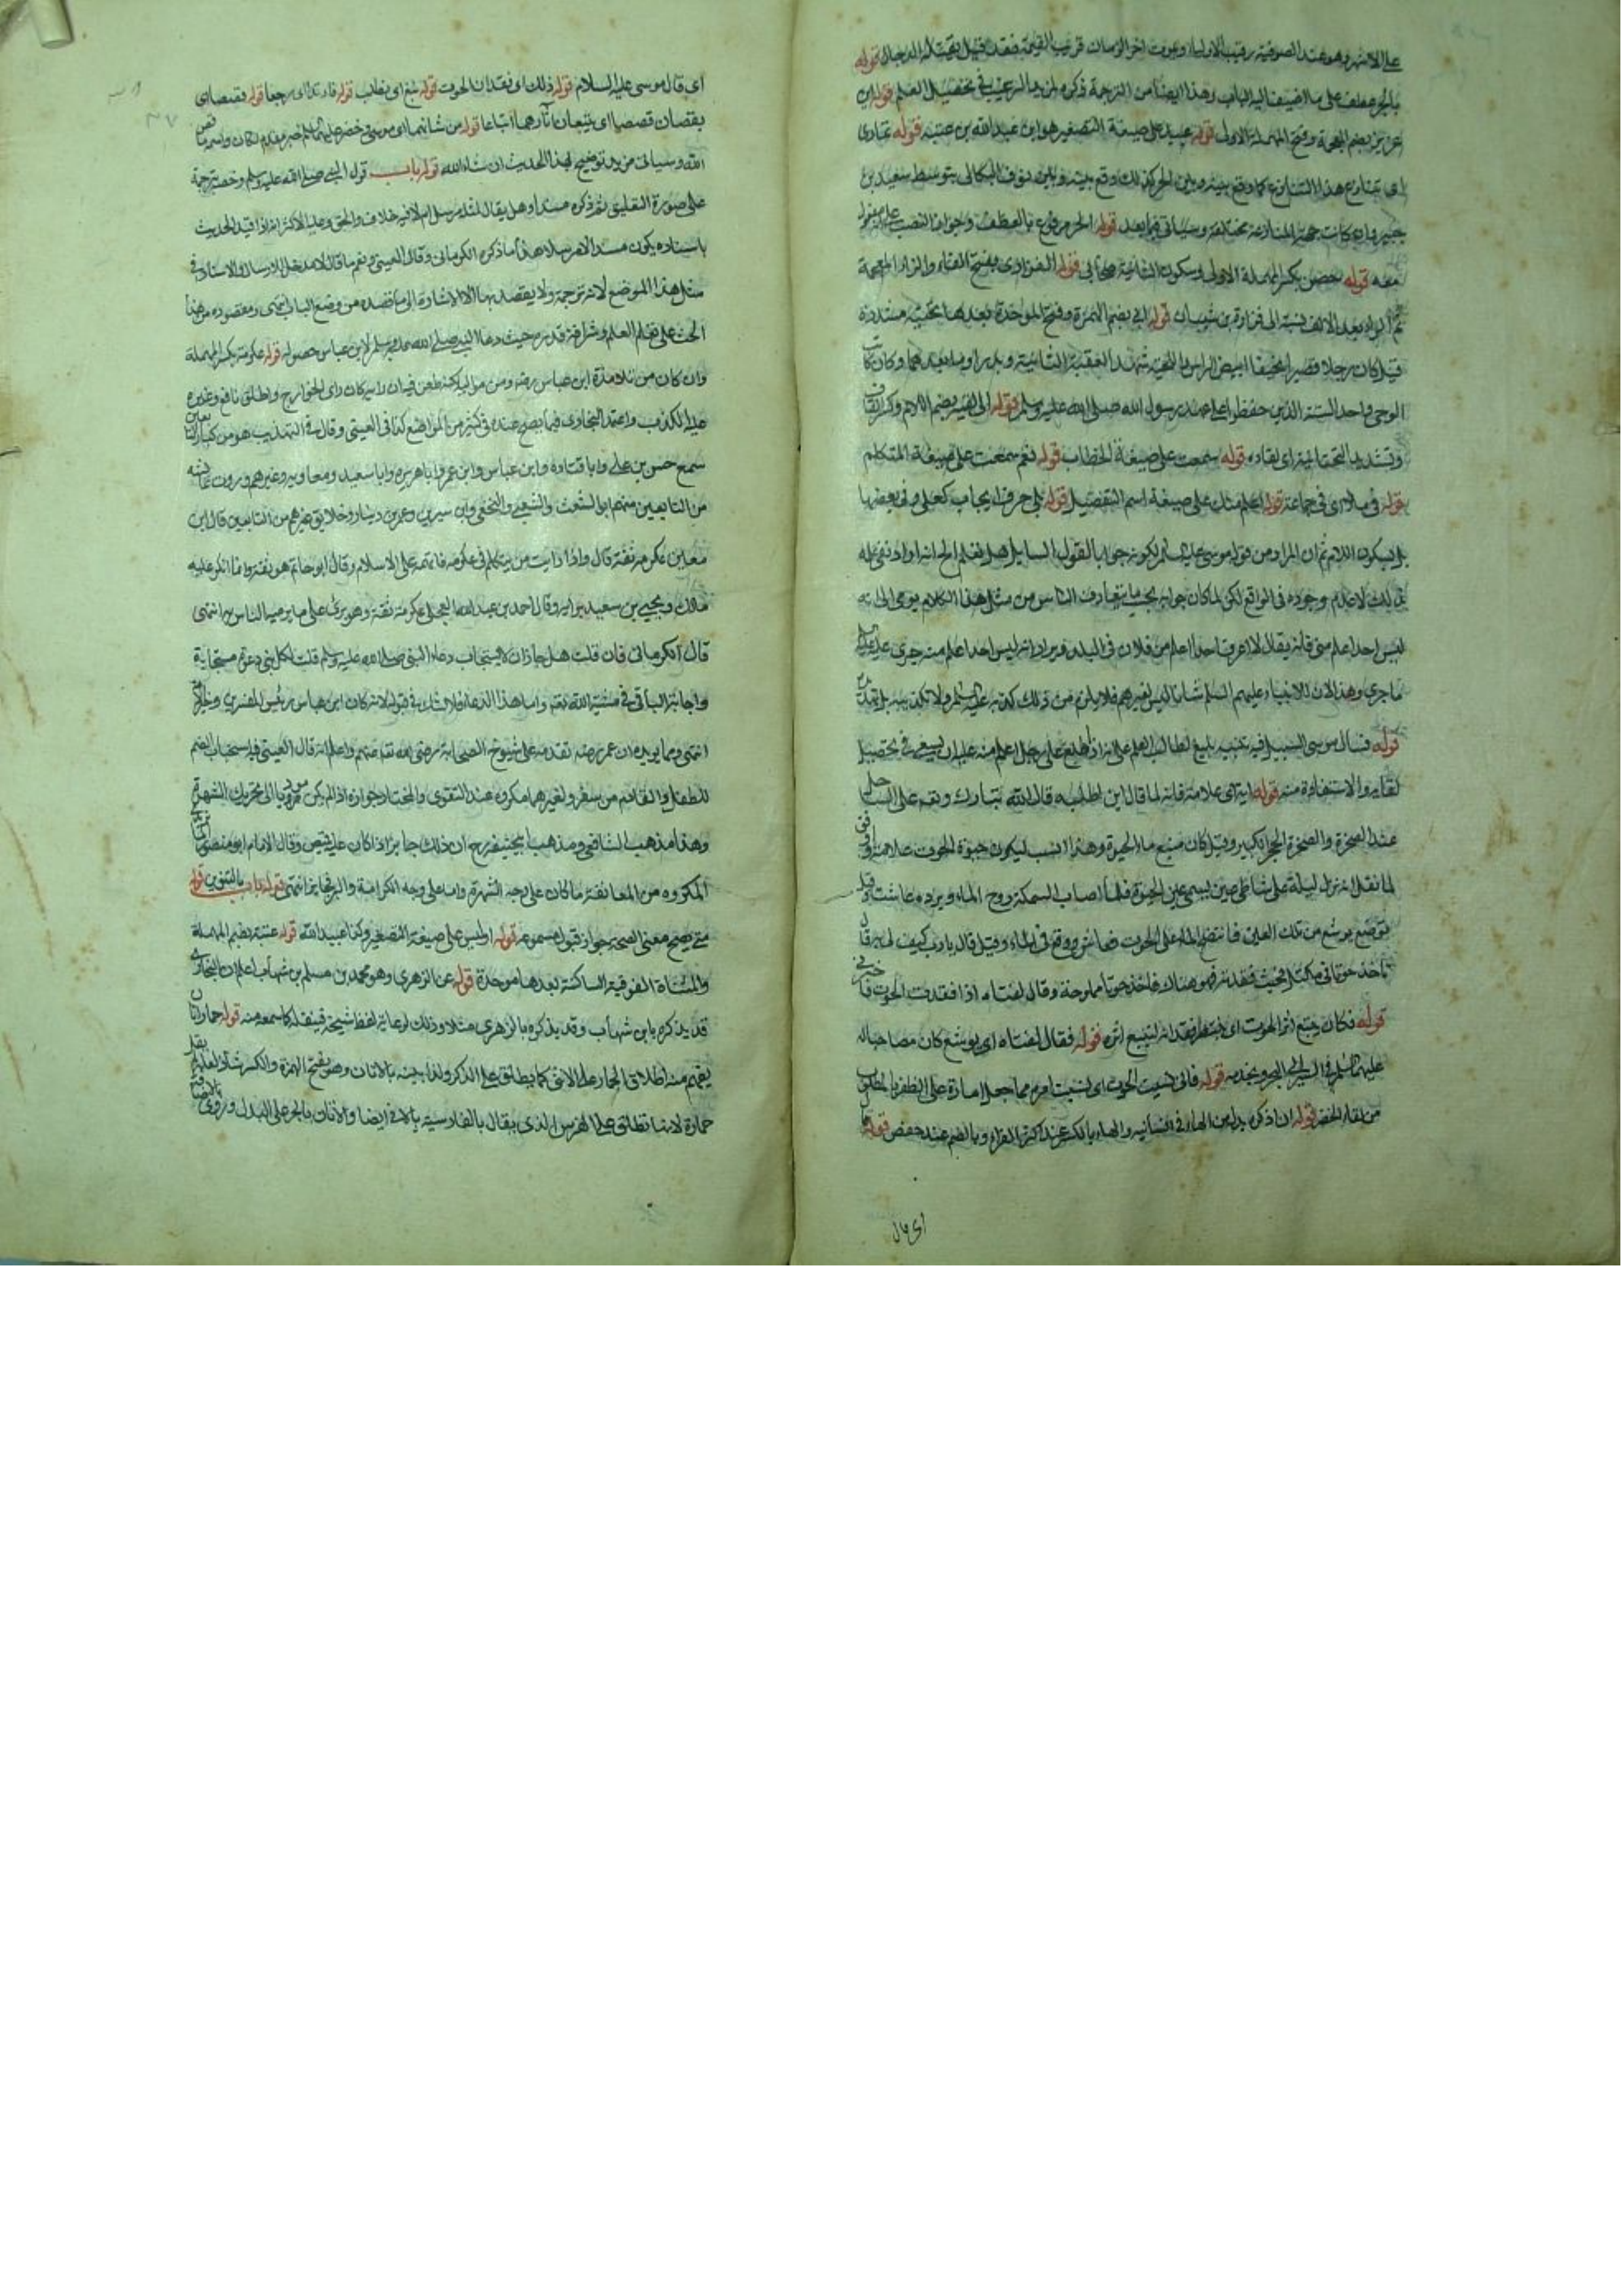 على الاشهر وهو عند الصوفية رقيب الاولياء ويموت اخر الزمان قريب القيمة فقد قيل يقتله الدجال قوله
بالجر عطف على ما اضيف اليه الباب وهذا ايضا من الترجمة ذكره لمزيد الترغيب في تحصيل العلم قوله ابن
عزيز بضم المعجمة وفتح المهملة الاولى قوله عبيد على صيغة التصغير هو ابن عبد الله بن عتبة قوله تمارى
اى تنازع هذا التنازع كما وقع بينه وبين الحر كذلك وقع بينه وبين نوف البكالى بتوسط سعيد بن
جبير كانت جهة المنازعة مختلفة وسياتى فيما بعد قوله الحر مرفوع بالعطف وجواز النصب على مفعول
معه قوله حصن بكسر المهملة الاولى وسكون الثانية صحابى قوله الفزارى بفتح الفاء والزاء المعجمة
ثم الراء بعد الالف نسبة الى فزارة بن شيبان قوله ابي بضم الهمزة وفتح الموحدة بعدها تحتية مشددة
قيل كان رجلا قصيرا نحيفا ابيض الراس واللحية شهد العقبة الثانية وبدرا وما بعدهما وكان كاتب
الوحى واحد الستة الذين حفظوا على عهد رسول الله صلى الله عليه وسلم قوله الى لقيه بضم اللام وكسر القاف
وتشديد التحتانية اى لقاءه قوله سمعت على صيغة الخطاب قوله نعم سمعت على صيغة المتكلم
قوله فى ملاء اى فى جماعة قوله اعلم منك على صيغة اسم التفضيل قوله بلى حرف ايجاب كعلى وفى بعضها
بل بسكون اللام ثم ان المراد من قول موسى عليه السلم لكونه جوابا لقول السايل هل تعلم الخ انه اراد نفى علمه
بذلك لا عدم وجوده فى الواقع لكن لما كان جوابه بحسب ما يتعارف الناس من مثل هذا الكلام يومى الى انه
ليس احد اعلم منى فانه يقال لا اعرف احدا اعلم من فلان فى البلد ويراد انه ليس احد اعلم منه جرى عليه
ما جرى وهذا لان للانبياء عليهم السلم شانا ليس لغيرهم فلا يلزم من ذلك كذبه عليه السلم
قوله فسال موسى السبيل فيه تنبيه بليغ لطالب العلم على انه اذا اطلع على رجل اعلم منه عليه ان يسعى فى تحصيل
لقايه والاستفادة منه قوله اية اى علامة فانه لما قال اين اطلبه قال الله تبارك وتعالى على الساحل
عند الصخرة والصخرة الحجر الكبير وقيل كان منبع ماء الحيوة وهذا انسب ليكون حيوة الحوت علامة
لما نقل انه نزل ليلة على شاطى عين يسمى عين الحيوة فلما اصاب السمكة روح الماء وبرده عاشت وقيل
توضع يوشع من تلك العين فانتضح الماء على الحوت فعاش ووقع فى الماء وقيل قال يا رب كيف لى به قال
تاخذ حوتا فى مكتل فحيث فقدته فهو هناك فاخذ حوتا مملوحة وقال لفتاه اذا فقدت الحوت فاخبرنى
قوله فكان يتبع اثر الحوت اى ينتظر فقدانه ليتبع اثره قوله فقال لفتاه اى يوشع كان مصاحبا له
عليهما السلم فى السير الى البحر ويخدمه قوله فانى نسيت الحوت اى نسيت امره مما جعل امارة على الظفر بالمطلوب
من لقاء الخضر قوله ان اذكره بدل من الهاء فى انسانيه والهاء بالكسر عند اكثر القراء وبالضم عند حفص قوله قال
اى قال
اى قال موسى عليه السلام قوله ذلك اى فقدان الحوت قوله نبغ اى نطلب قوله فارتدا اى رجعا قوله قصصا اى
يقصان قصصا اى يتبعان اثارهما اتباعا قوله من شانهما اى موسى وخضر عليهما السلم خبر مقدم لكان واسمه ما قص
الله وسياتى مزيد توضيح لهذا الحديث ان شاء الله قوله باب قول النبى صلى الله عليه وسلم وخصه بترجمة
على صورة التعليق ثم ذكره مسندا وهل يقال لمثله مرسل ام لا فيه خلاف والحق وعليه الاكثر انه اذا قيد الحديث
باسناده يكون مسندا لا مرسلا هذا ما ذكره الكرمانى وقال العينى نعم ما قال لا مدخل للارسال والاسناد فى
مثل هذا الموضع لانه ترجمة ولا يقصد بها الا الاشارة الى ما قصده من وضع الباب انتهى ومقصوده من هذا
الحث على تعلم العلم وشرافة قدره حيث دعا النبى صلى الله عليه وسلم لابن عباس حصوله قوله عكرمة بكسر المهملة
وان كان من تلامذة ابن عباس رضه ومن مواليه لكنه طعن فيه ان رايه كان راى الخوارج واطلق نافع وغيره
عليه الكذب واعتمد البخارى فيما يصح عنده فى كثير من المواضع كذا فى العينى وقال فى التهذيب هو من كبار التابعين
سمع حسن بن على وابا قتادة وابن عباس وابن عمر وابا هريرة وابا سعيد ومعاوية وغيرهم وروت عنه
من التابعين منهم ابو الشعث والشعبى والنخعى وابن سيرين وعمر بن دينار وخلايق غيرهم من التابعين قال ابن
معين عكرمة ثقة قال واذا رايت من يتكلم فى عكرمة فاتهمه على الاسلام وقال ابو حاتم هو ثقة وانما انكر عليه
مالك ويحيى بن سعيد برايه وقال احمد بن عبد الله العجلى عكرمة ثقة وهو برئ على ما يرميه الناس به انتهى
قال الكرمانى فان قلت هل جاز ان لا يستجاب دعاء النبى صلى الله عليه وسلم قلت لكل نبى دعوة مستجابة
واجابة الباقى فى مشية الله تعم واما هذا الدعاء فلا شك فى قبوله لانه كان ابن عباس رئيس المفسرين
انتهى ومما يويده ان عمر رضه تقدمه على شيوخ الصحابة رضى الله تعا عنهم واعلم انه قال العينى فيه استحباب الضم
للطفل والقادم من سفر ولغيرهما مكروه عند التقوى والمختار جوازه اذا لم يكن مؤديا الى تحريك الشهوة
وهذا مذهب الشافعى ومذهب ابيحنيفه رح ان ذلك جايز اذا كان عليه قميص وقال الامام ابو منصور
المكروه من المعانقة ما كان على وجه الشهوة واما على وجه الكرامة والبر فجايز انتهى قوله باب بالتنوين قوله
متى يصح معنى الصحة جواز قبول مسموعه قوله اويس على صيغة التصغير وكذا عبيد الله قوله عتبة بضم المهملة
والمثناة الفوقية الساكنة بعدها موحدة قوله عن الزهرى وهو محمد بن مسلم بن شهاب اعلم ان البخارى
قد يذكره بابن شهاب وقد يذكره بالزهرى مثلا وذلك لرعاية لفظ شيخه فينقله كما سمع منه قوله حمار اتان
يفهم منه اطلاق الحمار على الانثى كما يطلق على الذكر ولذا بينه بالاتان وهو بفتح الهمزة والكسر شاذ
حمارة لانها تطلق على الفرس الذى يقال بالفارسية بالانى ايضا والاتان بالجر على البدل وروى